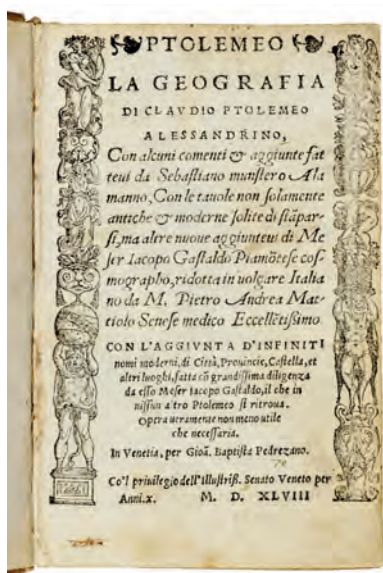 PTOLEMEO
LA GEOGRAFIA
DI CLAVDIO PTOLEMEO
ALESSANDRINO,
Con alcuni comenti & aggiunte fat
teui da Sebastiano munstero Ala
manno, Con le tauole non solamente
antiche & moderne solite di stāpar-
si, ma altre nuoue aggiunteui di Me
ser Iacopo Gastaldo Piamōtese cos-
mographo, ridotta in uolgare Italia
no da M. Pietro Andrea Mat-
tiolo Senese medico Eccellētissimo.
CON L'AGGIVNTA D'INFINITI
nomi moderni, di Città, Prouincie, Castella, et
altri luoghi, fatta cō grandissima diligenza
da esso Meser Iacopo Gastaldo, il che in
nissun a tro Ptolemeo si ritroua.
Opera ueramente non meno utile
che necessaria.
In Venetia, per Gioā. Baptista Pedrezano.
Co'l priuilegio dell'Illustriss. Senato Veneto per
Anni.x. M. D. XLVIII